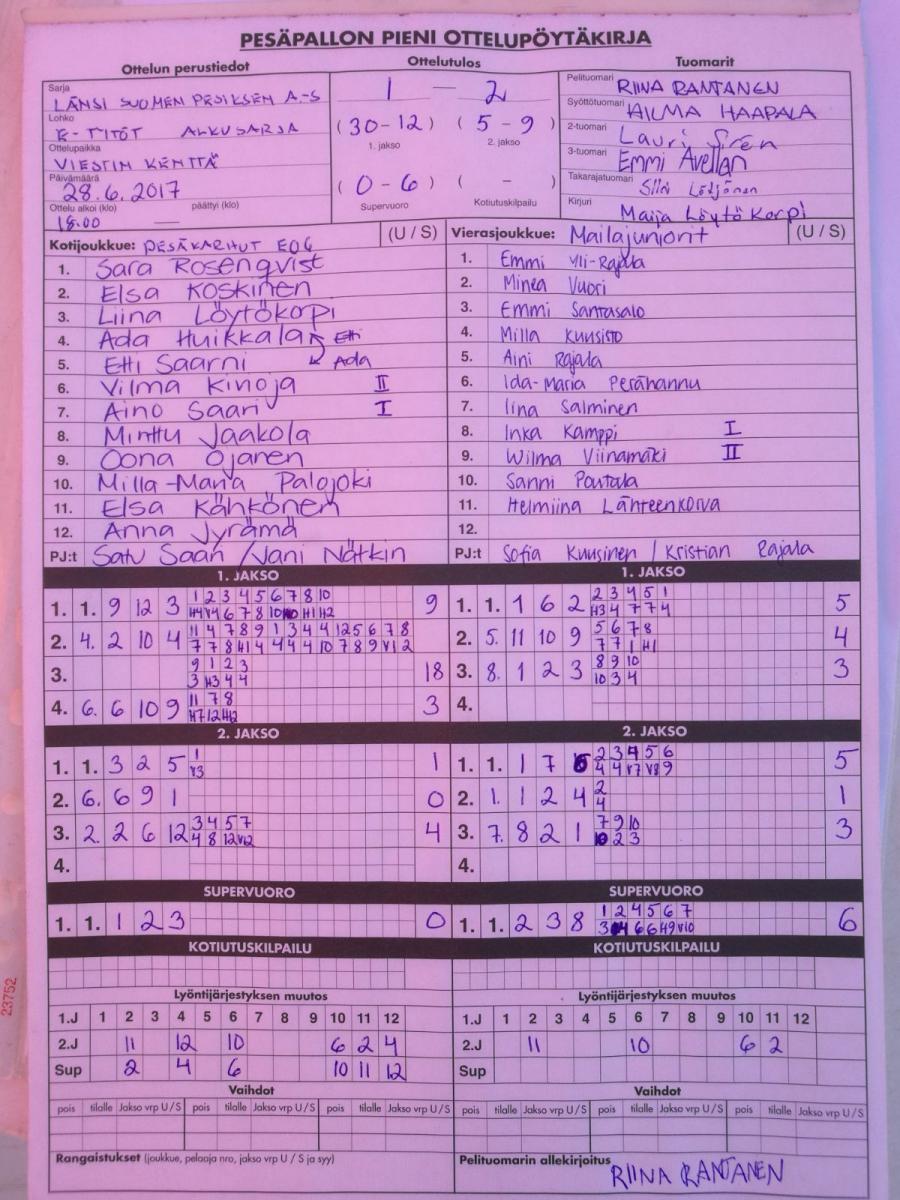 PESÄPALLON PIENI OTTELUPÖYTÄKIRJA
Ottelun perustiedot
Sarja
LÄNSI SUOMEN PESIKSEN A-S
Lohko
E-TITÖT ALKUSARJA
Ottelupaikka
VIESTIN KENTTÄ
Päivämäärä
28.6.2017
Ottelu alkoi (klo) päättyi (klo)
18.00
Ottelutulos
1 — 2
(30-12) (5-9)
1. jakso 2. jakso
(0-6) ( - )
Supervuoro Kotiutuskilpailu
Tuomarit
Pelituomari RIINA RANTANEN
Syöttötuomari HILMA HAAPALA
2-tuomari Lauri Siren
3-tuomari Emmi Avellan
Takarajatuomari Silri
Kirjuri Maija Löytökorpi
Kotijoukkue: PESÄKARHUT E06 (U / S)
1. Sara Rosenqvist
2. Elsa Koskinen
3. Liina Löytökorpi
4. Ada Huikkala Etti
5. Etti Saarni Ada
6. Vilma Kinoja II
7. Aino Saari I
8. Minttu Jaakola
9. Oona Ojanen
10. Milla-Maria Palojoki
11. Elsa Kähkönen
12. Anna Jyrämä
PJ:t Satu Saari / Jani Nätkin
Vierasjoukkue: Mailajuniorit (U / S)
1. Emmi Yli-Rajala
2. Minea Vuori
3. Emmi Santasalo
4. Milla Kuusisto
5. Aini Rajala
6. Ida-Maria Perähannu
7. Iina Salminen
8. Inka Kamppi I
9. Wilma Viinamäki II
10. Sanni Poutala
11. Helmiina Lähteenkorva
12.
PJ:t Sofia Kuusinen / Kristian Rajala
1. JAKSO
1. 1. 9 12 3 1 2 3 4 5 6 7 8 10 9
H4 V4 6 7 8 10 H1 H2
2. 4. 2 10 4 11 4 7 8 9 1 3 4 4 12 5 6 7 8
7 7 8 H1 4 4 4 4 10 7 8 9 V1 2
3. 9 1 2 3 18
3 H3 4 4
4. 6. 6 10 9 11 7 8 3
H7 12 H12
1. JAKSO
1. 1. 1 6 2 2 3 4 5 1 5
H3 4 7 7 4
2. 5. 11 10 9 5 6 7 8 4
7 7 1 H1
3. 8. 1 2 3 8 9 10 3
10 3 4
4.
2. JAKSO
1. 1. 3 2 5 1 1
V3
2. 6. 6 9 1 0
3. 2. 2 6 12 3 4 5 7 4
4 8 12 V12
4.
2. JAKSO
1. 1. 1 7 6 2 3 4 5 6 5
4 4 V7 V8 9
2. 1. 1 2 4 2 1
4
3. 7. 8 2 1 7 9 10 3
10 2 3
4.
SUPERVUORO
1. 1. 1 2 3 0
SUPERVUORO
1. 1. 2 3 8 1 2 4 5 6 7 6
3 4 6 6 H9 V10
KOTIUTUSKILPAILU
KOTIUTUSKILPAILU
Lyöntijärjestyksen muutos
1.J 1 2 3 4 5 6 7 8 9 10 11 12
2.J 11 12 10 6 2 4
Sup 2 4 6 10 11 12
Lyöntijärjestyksen muutos
1.J 1 2 3 4 5 6 7 8 9 10 11 12
2.J 11 10 6 2
Sup
Vaihdot
pois tilalle Jakso vrp U / S pois tilalle Jakso vrp U / S pois tilalle Jakso vrp U / S
Vaihdot
pois tilalle Jakso vrp U / S pois tilalle Jakso vrp U / S pois tilalle Jakso vrp U / S
Rangaistukset (joukkue, pelaaja nro, jakso vrp U / S ja syy)
Pelituomarin allekirjoitus RIINA RANTANEN
23752